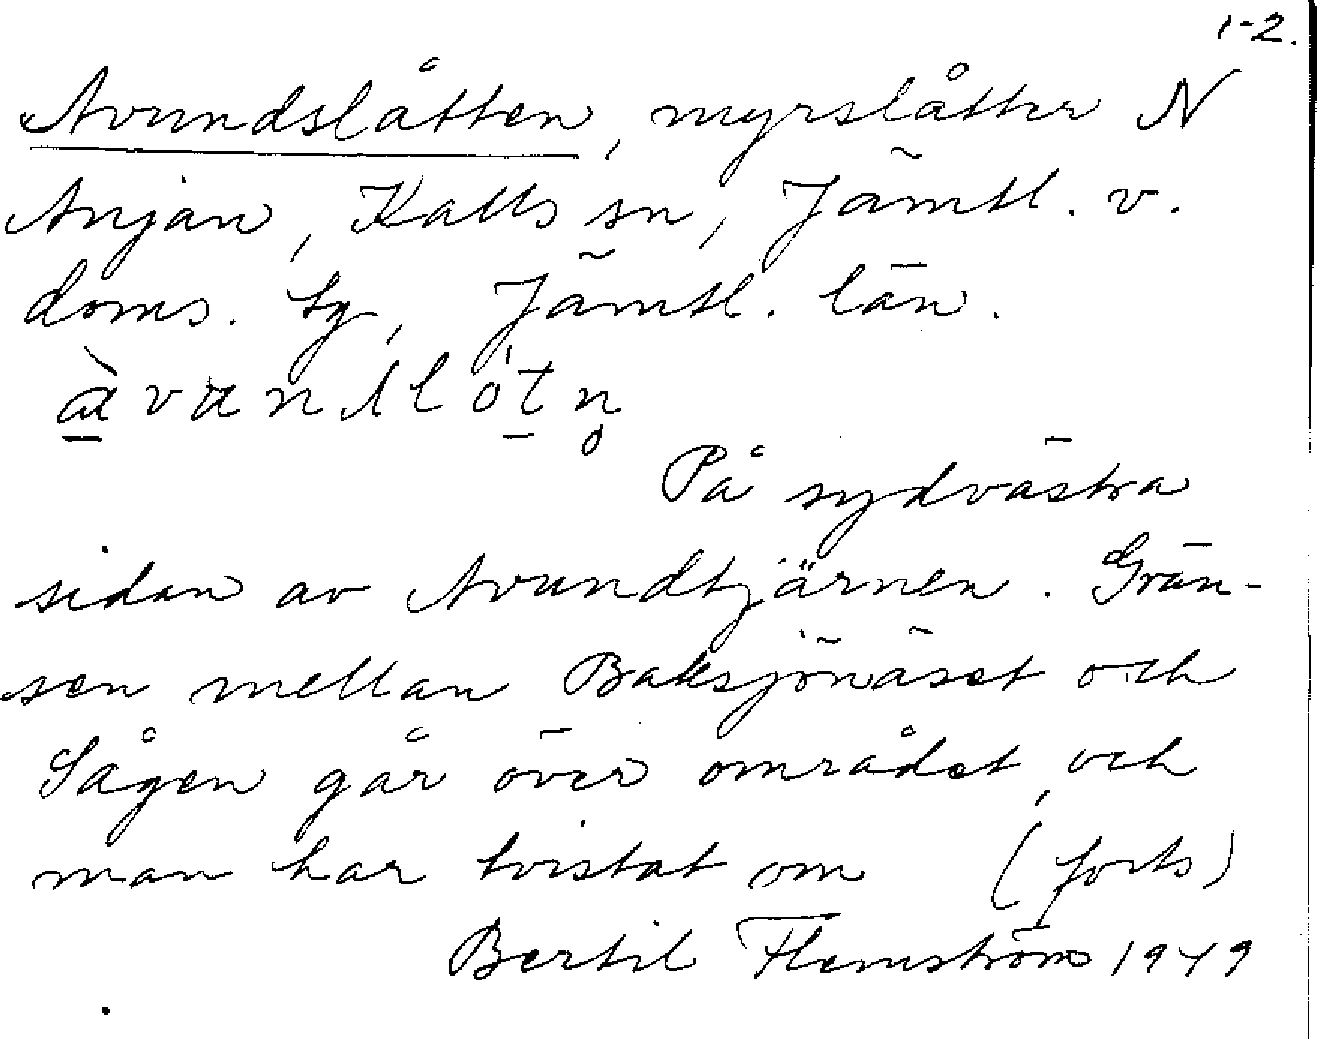 1-2.
Avundslåtten, myrslåtter N
Anjan, Kalls sn, Jämtl. v.
doms. tg, Jämtl. län.
àvandslötn̥
På sydvästra
sidan av Avundtjärnen. Grän-
sen mellan Baksjönäset och
Sågen går över området, och
man har tvistat om (forts)
Bertil Flemström 1949